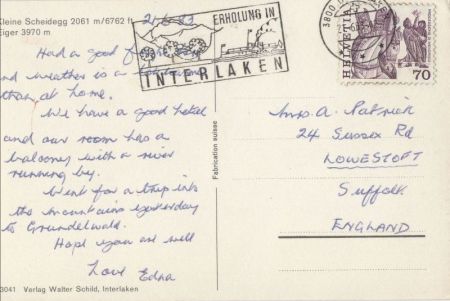 Kleine Scheidegg 2061 m/6762 ft
Eiger 3970 m
21.6.83
Had a good
and weather is a
than at home.
We have a good hotel
and our room has a
balcony with a river
running by.
Went for a trip into
the mountains yesterday
to Grundelwald.
Hope you are well
Love Edna
3041 Verlag Walter Schild, Interlaken
Fabrication suisse
ERHOLUNG IN
INTERLAKEN
3800
HELVETIA
70
Mrs. A. Patrick
24 Sussex Rd
LOWESTOFT
Suffolk
ENGLAND